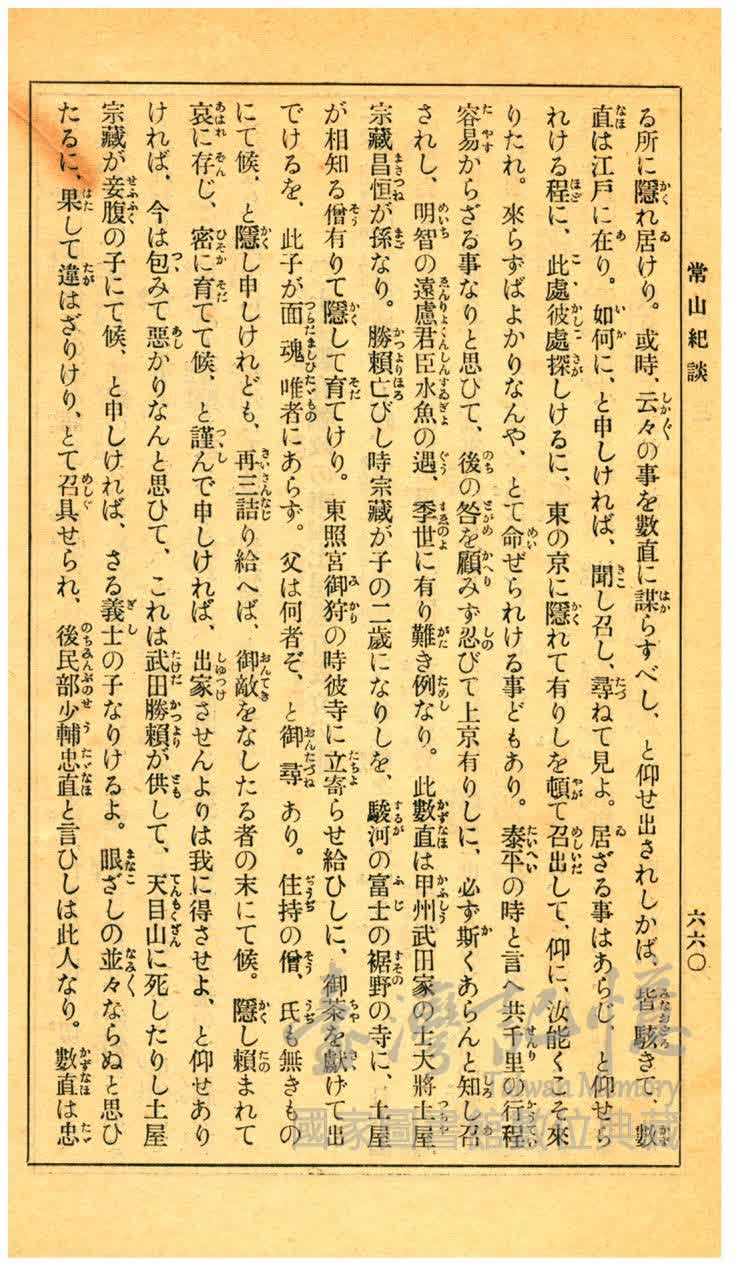 常山紀談
六六〇
る所に隱れ居けり。或時、云々の事を數直に謀らすべし、と仰せ出されしかば、皆駭きて、數
直は江戸に在り。如何に、と申しければ、聞し召し、尋ねて見よ。居ざる事はあらじ、と仰せら
れける程に、此處彼處探しけるに、東の京に隱れて有りしを頓て召出して、仰に、汝能くこそ來
りたれ。來らずばよかりなんや、とて命ぜられける事どもあり。泰平の時と言へ共千里の行程
容易からざる事なりと思ひて、後の咎を顧みず忍びて上京有りしに、必ず斯くあらんと知し召
されし、明智の遠慮君臣水魚の遇、季世に有り難き例なり。此數直は甲州武田家の士大將土屋
宗藏昌恒が孫なり。勝賴亡びし時宗藏が子の二歲になりしを、駿河の富士の裾野の寺に、土屋
が相知る僧有りて隱して育てけり。東照宮御狩の時彼寺に立寄らせ給ひしに、御茶を獻げて出
でけるを、此子が面魂唯者にあらず。父は何者ぞ、と御尋あり。住持の僧、氏も無きもの
にて候、と隱し申しけれども、再三詰り給へば、御敵をなしたる者の末にて候。隱し賴まれて
哀に存じ、密に育てて候、と謹んで申しければ、出家させんよりは我に得させよ、と仰せあり
ければ、今は包みて惡かりなんと思ひて、これは武田勝賴が供して、天目山に死したりし土屋
宗藏が妾腹の子にて候、と申しければ、さる義士の子なりけるよ。眼ざしの並々ならぬと思ひ
たるに、果して違はざりけり、とて召具せられ、後民部少輔忠直と言ひしは此人なり。數直は忠
臺灣記憶
Taiwan Memory
國家圖書館數位典藏